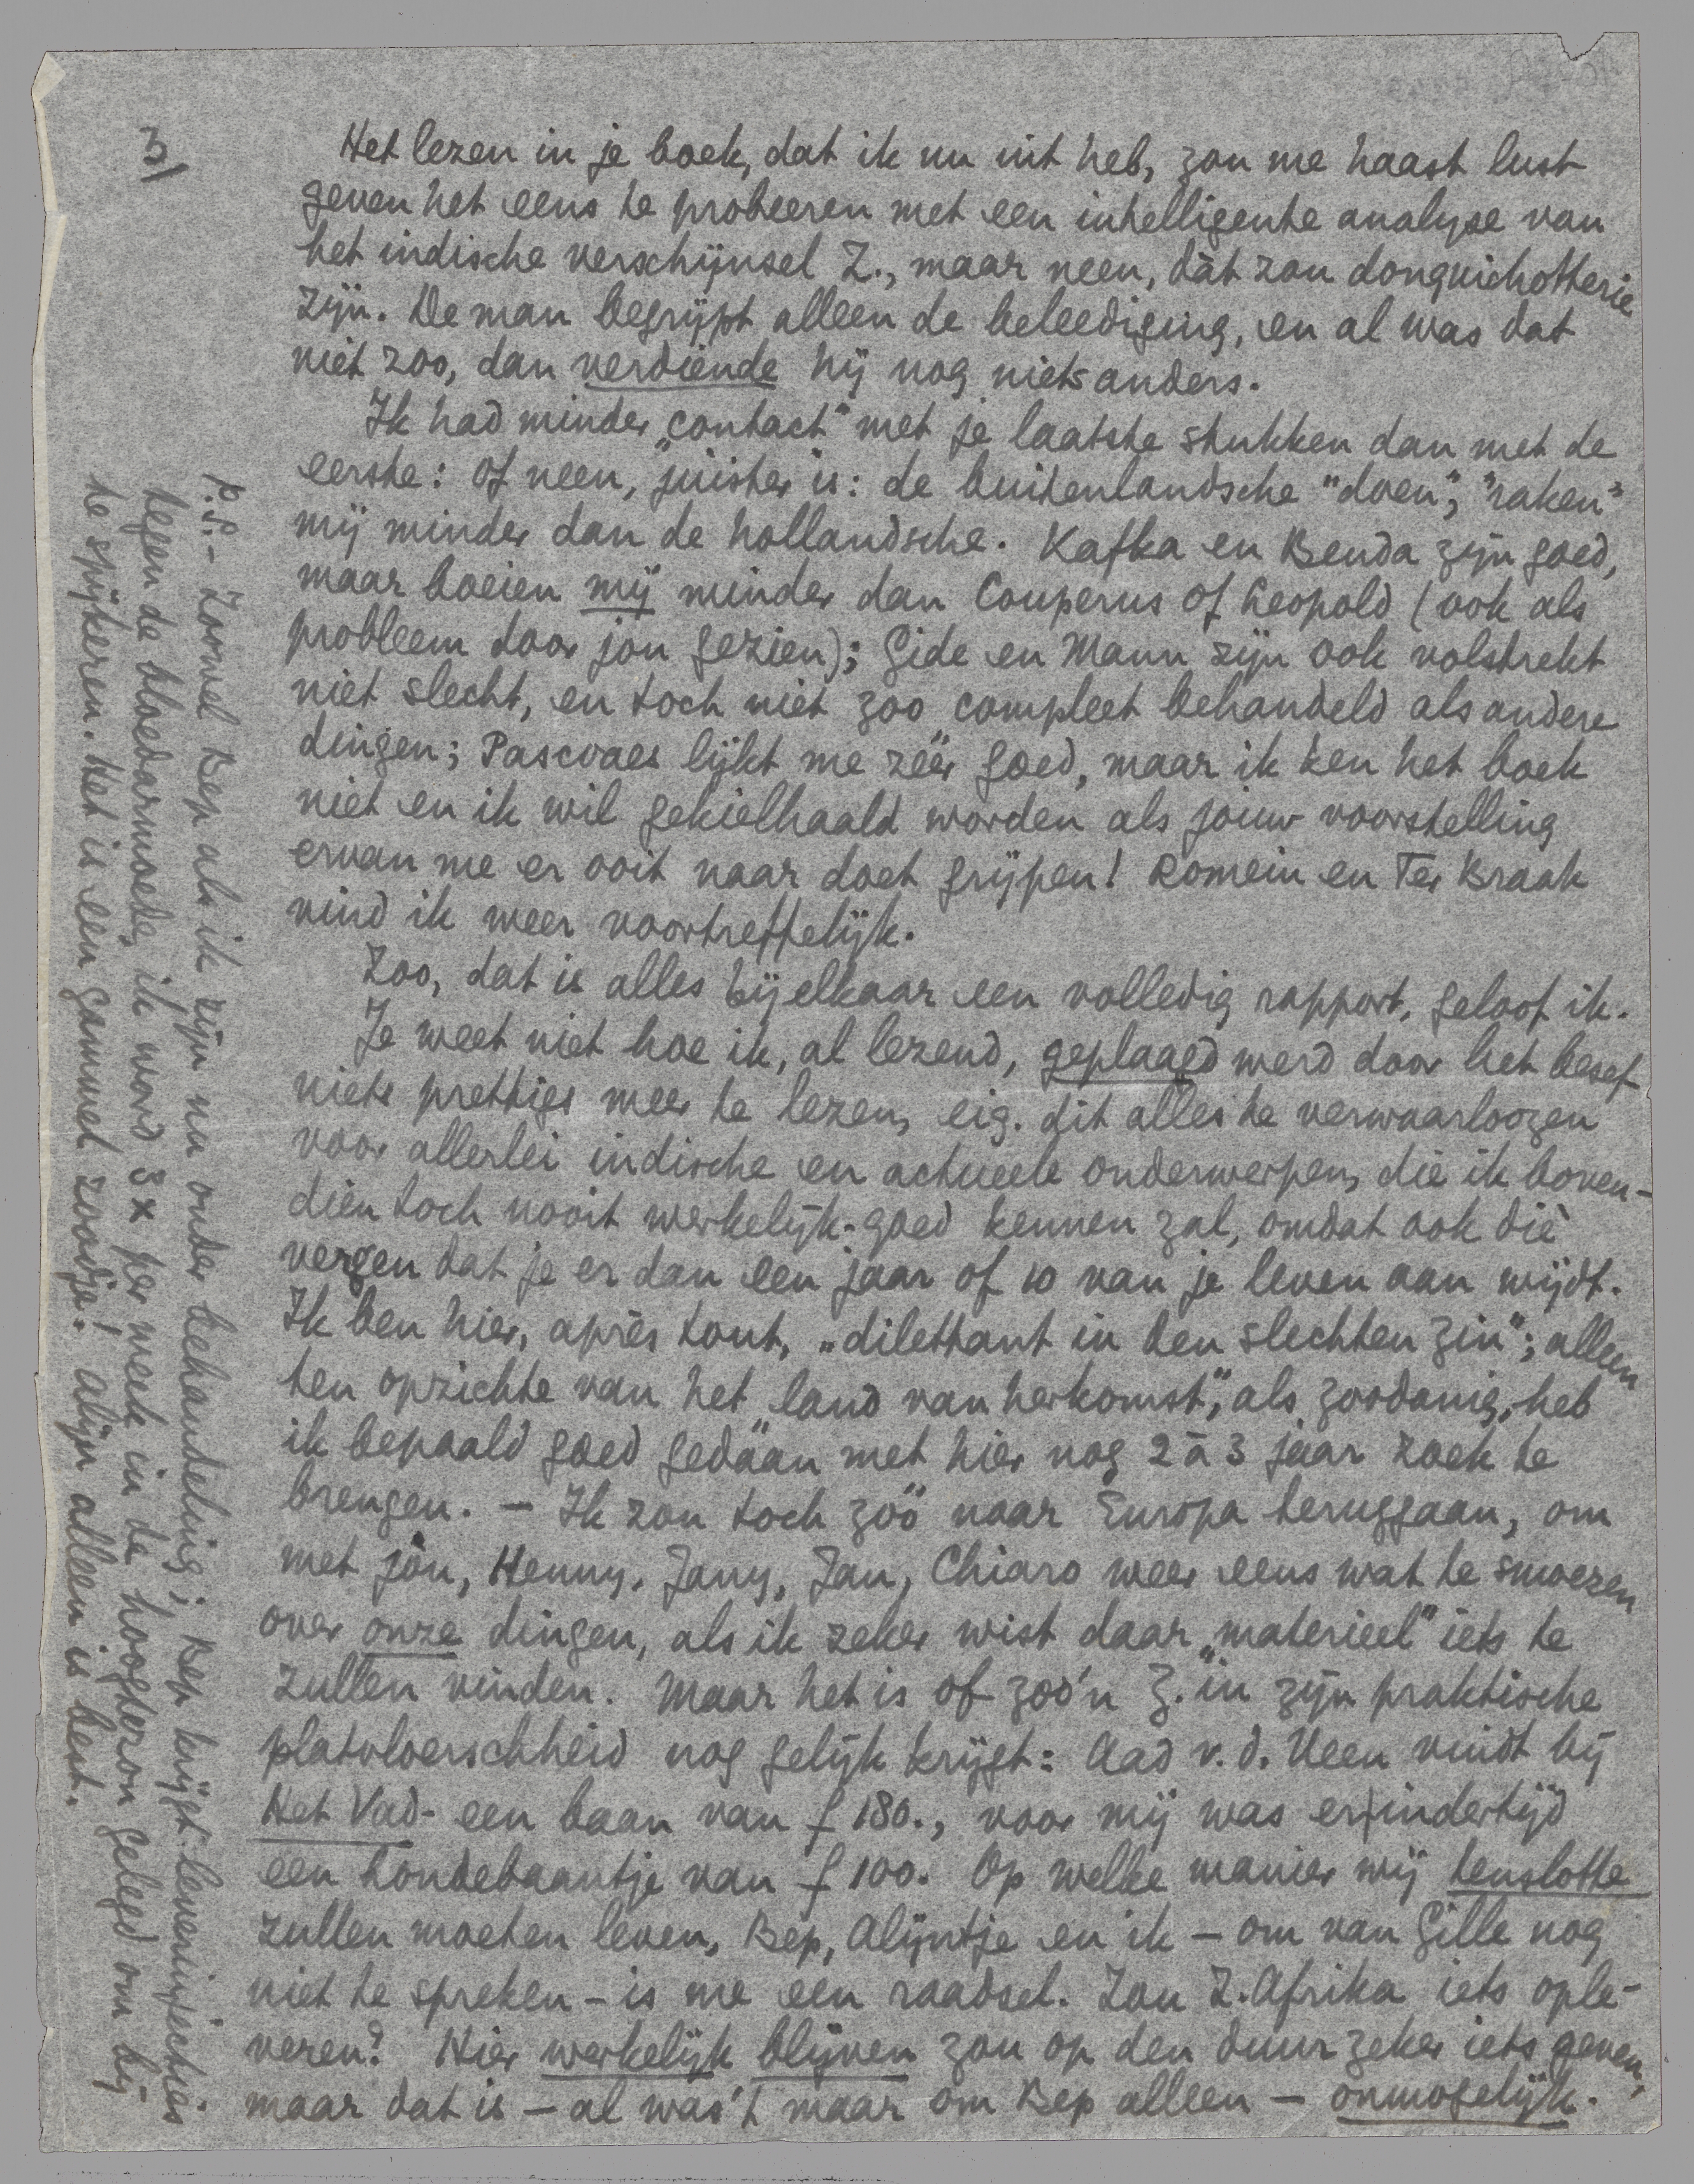 3/
Het lezen in je boek, dat ik nu uit heb, zou me haast lust
geven het eens te probeeren met een intelligente analyse van
het indische verschijnsel Z., maar neen, dàt zou donquichotterie
zijn. De man begrijpt alleen de beleediging, en al was dat
niet zoo, dan verdiende hij nog niets anders.
Ik had minder „contact" met je laatste stukken dan met de
eerste: of neen, juister is: de buitenlandsche "doen", "raken"
mij minder dan de hollandsche. Kafka en Benda zijn goed,
maar boeien mij minder dan Couperus of Leopold (ook als
probleem door jou gezien); Gide en Mann zijn ook volstrekt
niet slecht, en toch niet zoo compleet behandeld als andere
dingen; Pascoaes lijkt me zéér goed, maar ik ken het boek
niet en ik wil gekielhaald worden als jouw voorstelling
ervan me er ooit naar doet grijpen! Romein en Ter Braak
vind ik weer voortreffelijk.
Zoo, dat is alles bijelkaar een volledig rapport, geloof ik.
Je weet niet hoe ik, al lezend, geplaagd werd door het besef
niets prettigs meer te lezen, eig. dit alles te verwaarloozen
voor allerlei indische en actueele onderwerpen, die ik boven-
dien toch nooit werkelijk-goed kennen zal, omdat ook die
vergen dat je er dan een jaar of 10 van je leven aan wijdt.
Ik ben hier, après tout, „dilettant in den slechten zin"; alleen
ten opzichte van het „land van herkomst", als zoodanig, heb
ik bepaald goed gedáan met hier nog 2 à 3 jaar zoek te
brengen. – Ik zou toch zóó naar Europa teruggaan, om
met jou, Henny, Jany, Jan, Chiaro weer eens wat te smoezen
over onze dingen, als ik zeker wist daar „materieel" iets te
zullen vinden. Maar het is of zoo'n Z. in zijn praktische
platvloerschheid nog gelijk krijgt: Aad v. d. Veen vindt bij
Het Vad- een baan van f 180., voor mij was er indertijd
een hondebaantje van f 100. Op welke manier wij tenslotte
zullen moeten leven, Bep, Alijntje en ik – om van Gille nog
niet te spreken – is me een raadsel. Zou Z. Afrika iets ople-
veren? Hier werkelijk blijven zou op den duur zeker iets geven,
maar dat is – al was 't maar om Bep alleen – onmogelijk.
P.S. – Zoowel Bep als ik zijn nu onder behandeling; Bep krijgt leverinjecties
tegen de bloedarmoede, ik word 3 x per week in de hoogtezon gelegd om bij
te spijkeren. Het is een gammel zoodje! Alijn alleen is best.